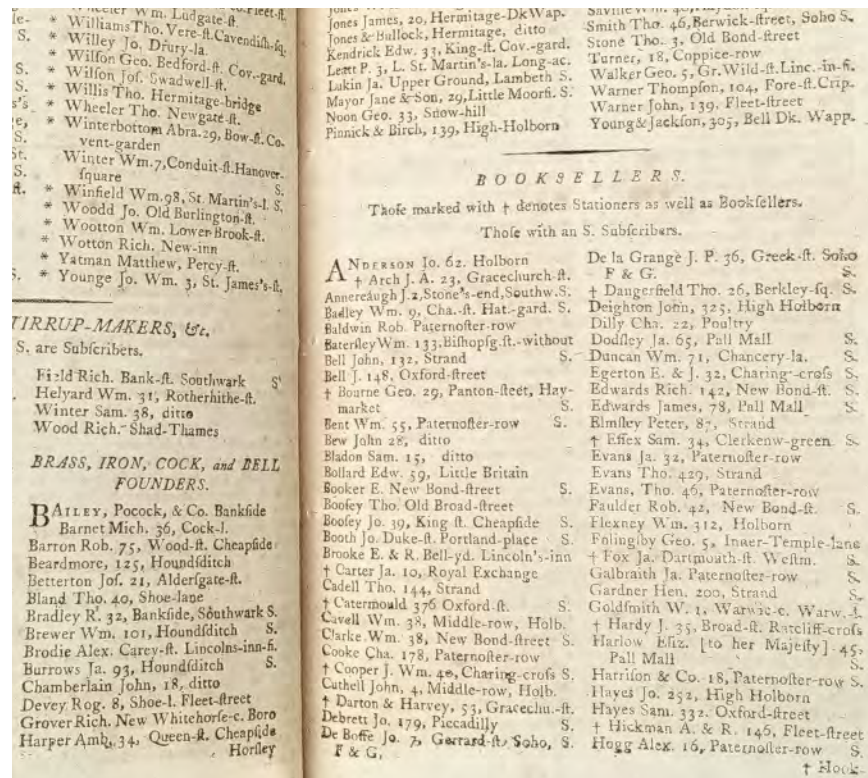 Wheeler Wm. Ludgate-ſt.
* Williams Tho. Vere-ſt. Cavendiſh-ſq.
* Willey Jo. Drury-la.
* Wilſon Geo. Bedford-ſt. Cov-gard.
* Wilſon Joſ. Swadwell-ſt.
* Willis Tho. Hermitage-bridge
* Wheeler Tho. Newgate-ſt.
* Winterbottom Abra. 29, Bow-ſt. Co-
vent-garden
Winter Wm. 7, Conduit-ſt. Hanover-
ſquare S.
* Winfield Wm. 98, St. Martin's-l. S.
* Woodd Jo. Old Burlington-ſt.
* Wootton Wm. Lower Brook-ſt.
* Wotton Rich. New-inn
* Yatman Matthew, Percy-ſt.
* Younge Jo. Wm. 3, St. James's-ſt.
TIRRUP-MAKERS, &c.
S. are Subſcribers.
Field Rich. Bank-ſt. Southwark S
Helyard Wm. 31, Rotherhithe-ſt.
Winter Sam. 38, ditto
Wood Rich. Shad-Thames
BRASS, IRON, COCK, and BELL
FOUNDERS.
BAILEY, Pocock, & Co. Bankſide
Barnet Mich. 36, Cock-l.
Barron Rob. 75, Wood-ſt. Cheapſide
Beardmore, 125, Houndſditch
Betterton Joſ. 21, Alderſgate-ſt.
Bland Tho. 40, Shoe-lane
Bradley R. 32, Bankſide, Southwark S.
Brewer Wm. 101, Houndſditch S.
Brodie Alex. Carey-ſt. Lincolns-inn-fi.
Burrows Ja. 93, Houndſditch S.
Chamberlain John, 18, ditto
Devey Rog. 8, Shoe-l. Fleet-ſtreet
Grover Rich. New Whitehorſe-c. Boro
Harper Amb. 34, Queen-ſt. Cheapſide
Horſley
Jones James, 20, Hermitage-Dk Wap.
Jones & Bullock, Hermitage, ditto
Kendrick Edw. 33, King-ſt. Cov.-gard.
P. 3, L. St. Martin's-la. Long-ac.
Lukin Ja. Upper Ground, Lambeth S.
Mayor Jane & Son, 29, Little Moorfi. S.
Noon Geo. 33, Snow-hill
Pinnick & Birch, 139, High-Holborn
Smith Tho. 46, Berwick-ſtreet, Soho S.
Stone Tho. 3, Old Bond-ſtreet
Turner, 18, Coppice-row
Walker Geo. 5, Gr. Wild-ſt. Linc.-in-fi.
Warner Thompſon, 104, Fore-ſt. Crip.
Warner John, 139, Fleet-ſtreet
Young & Jackſon, 305, Bell Dk. Wapp.
BOOKSELLERS.
Thoſe marked with † denotes Stationers as well as Bookſellers.
Thoſe with an S. Subſcribers.
ANDERSON Jo. 62. Holborn
† Arch J. A. 23, Gracechurch-ſt.
Annereaugh J. 2, Stone's-end, Southw. S.
Badley Wm. 9, Cha.-ſt. Hat.-gard. S.
Baldwin Rob. Paternoſter-row
Baterſley Wm. 133. Biſhopſg.-ſt.-without
Bell John, 132, Strand S.
Bell J. 148, Oxford-ſtreet
† Bourne Geo. 29, Panton-ſteet, Hay-
market S.
Bent Wm. 55, Paternoſter-row S.
Bew John 28, ditto
Bladon Sam. 15, ditto
Bollard Edw. 59, Little Britain
Booker E. New Bond-ſtreet S.
Booſey Tho. Old Broad-ſtreet
Booſey Jo. 39, King ſt. Cheapſide S.
Booth Jo. Duke-ſt. Portland-place S.
Brooke E. & R. Bell-yd. Lincoln's-inn
† Carter Ja. 10, Royal Exchange
Cadell Tho. 144, Strand
† Catermould 376 Oxford-ſt. S.
Cavell Wm. 38, Middle-row, Holb.
Clarke Wm. 38, New Bond-ſtreet S.
Cooke Cha. 178, Paternoſter-row
† Cooper J. Wm. 40, Charing-croſs S.
Cuthell John, 4, Middle-row, Holb.
† Darton & Harvey, 53, Gracechu.-ſt.
Debrett Jo. 179, Piccadilly S.
De Boffe Jo. 7, Gerrard-ſt. Soho, S.
F & G,
De la Grange J. P. 36, Greek-ſt. Soho
F & G. S.
† Dangerfield Tho. 26, Berkley-ſq. S.
Deighton John, 325, High Holborn
Dilly Cha. 22, Poultry
Dodſley Ja. 65, Pall Mall S.
Duncan Wm. 71, Chancery-la. S.
Egerton E. & J. 32, Charing-croſs S.
Edwards Rich. 142, New Bond-ſt. S.
Edwards James, 78, Pall Mall S.
Elmſley Peter, 87, Strand
† Eſſex Sam. 34, Clerkenw-green S.
Evans Ja. 32, Paternoſter-row
Evans Tho. 429, Strand
Evans, Tho. 46, Paternoſter-row
Faulder Rob. 42, New Bond-ſt. S.
Flexney Wm. 312, Holborn
Folingſby Geo. 5, Inner-Temple-lane
† Fox Ja. Dartmouth-ſt. Weſtm. S.
Galbraith Ja. Paternoſter-row S.
Gardner Hen. 200, Strand S.
Goldſmith W. 1, Warwic-c. Warw.-ſt.
† Hardy J. 35, Broad-ſt. Ratcliff-croſs
Harlow Eliz. [to her Majeſty] 45,
Pall Mall S.
Harriſon & Co. 18, Paternoſter-row S.
Hayes Jo. 252, High Holborn
Hayes Sam. 332. Oxford-ſtreet
† Hickman A. & R. 146, Fleet-ſtreet
Hogg Alex. 16, Paternoſter-row S.
† Hook-